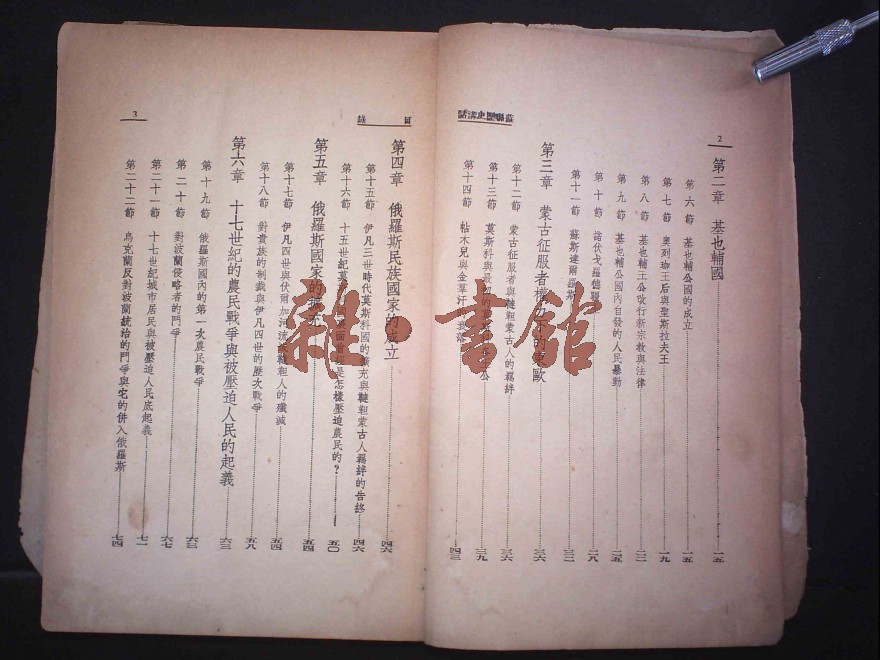 2
蘇聯歷史講話
第二章 基也輔國 一五
第六節 基也輔公國的成立 一五
第七節 奧列珈王后與聖斯拉夫王 一九
第八節 基也輔王公改行新宗教與法律 二二
第九節 基也輔公國內自發的人民暴動 二五
第十節 諾伏戈羅德 二八
第十一節 蘇斯達爾羅斯 三二
第三章 蒙古征服者權力下的東歐 三六
第十二節 蒙古征服者與韃靼蒙古人的羈絆 三六
第十三節 莫斯科與 的莫斯科 公 三九
第十四節 帖木兒與金羣汗 衰落 四三
目錄
3
第四章 俄羅斯民族國家的成立 四六
第十五節 伊凡三世時代莫斯科國的擴充與韃靼蒙古人羈絆的告終 四六
第十六節 十五世紀莫 國 是怎樣壓迫農民的? 五〇
第五章 俄羅斯國家的擴充 五四
第十七節 伊凡四世與伏爾加河流域韃靼人的殲滅 五四
第十八節 對貴族的制裁與伊凡四世的歷次戰爭 五八
第六章 十七世紀的農民戰爭與被壓迫人民的起義 六三
第十九節 俄羅斯國內的第一次農民戰爭 六三
第二十節 對波蘭侵略者的鬥爭 六七
第二十一節 十七世紀城市居民與被壓迫人民底起義 七一
第二十二節 烏克蘭反對波蘭統治的鬥爭與它的併入俄羅斯 七四
雜·書館